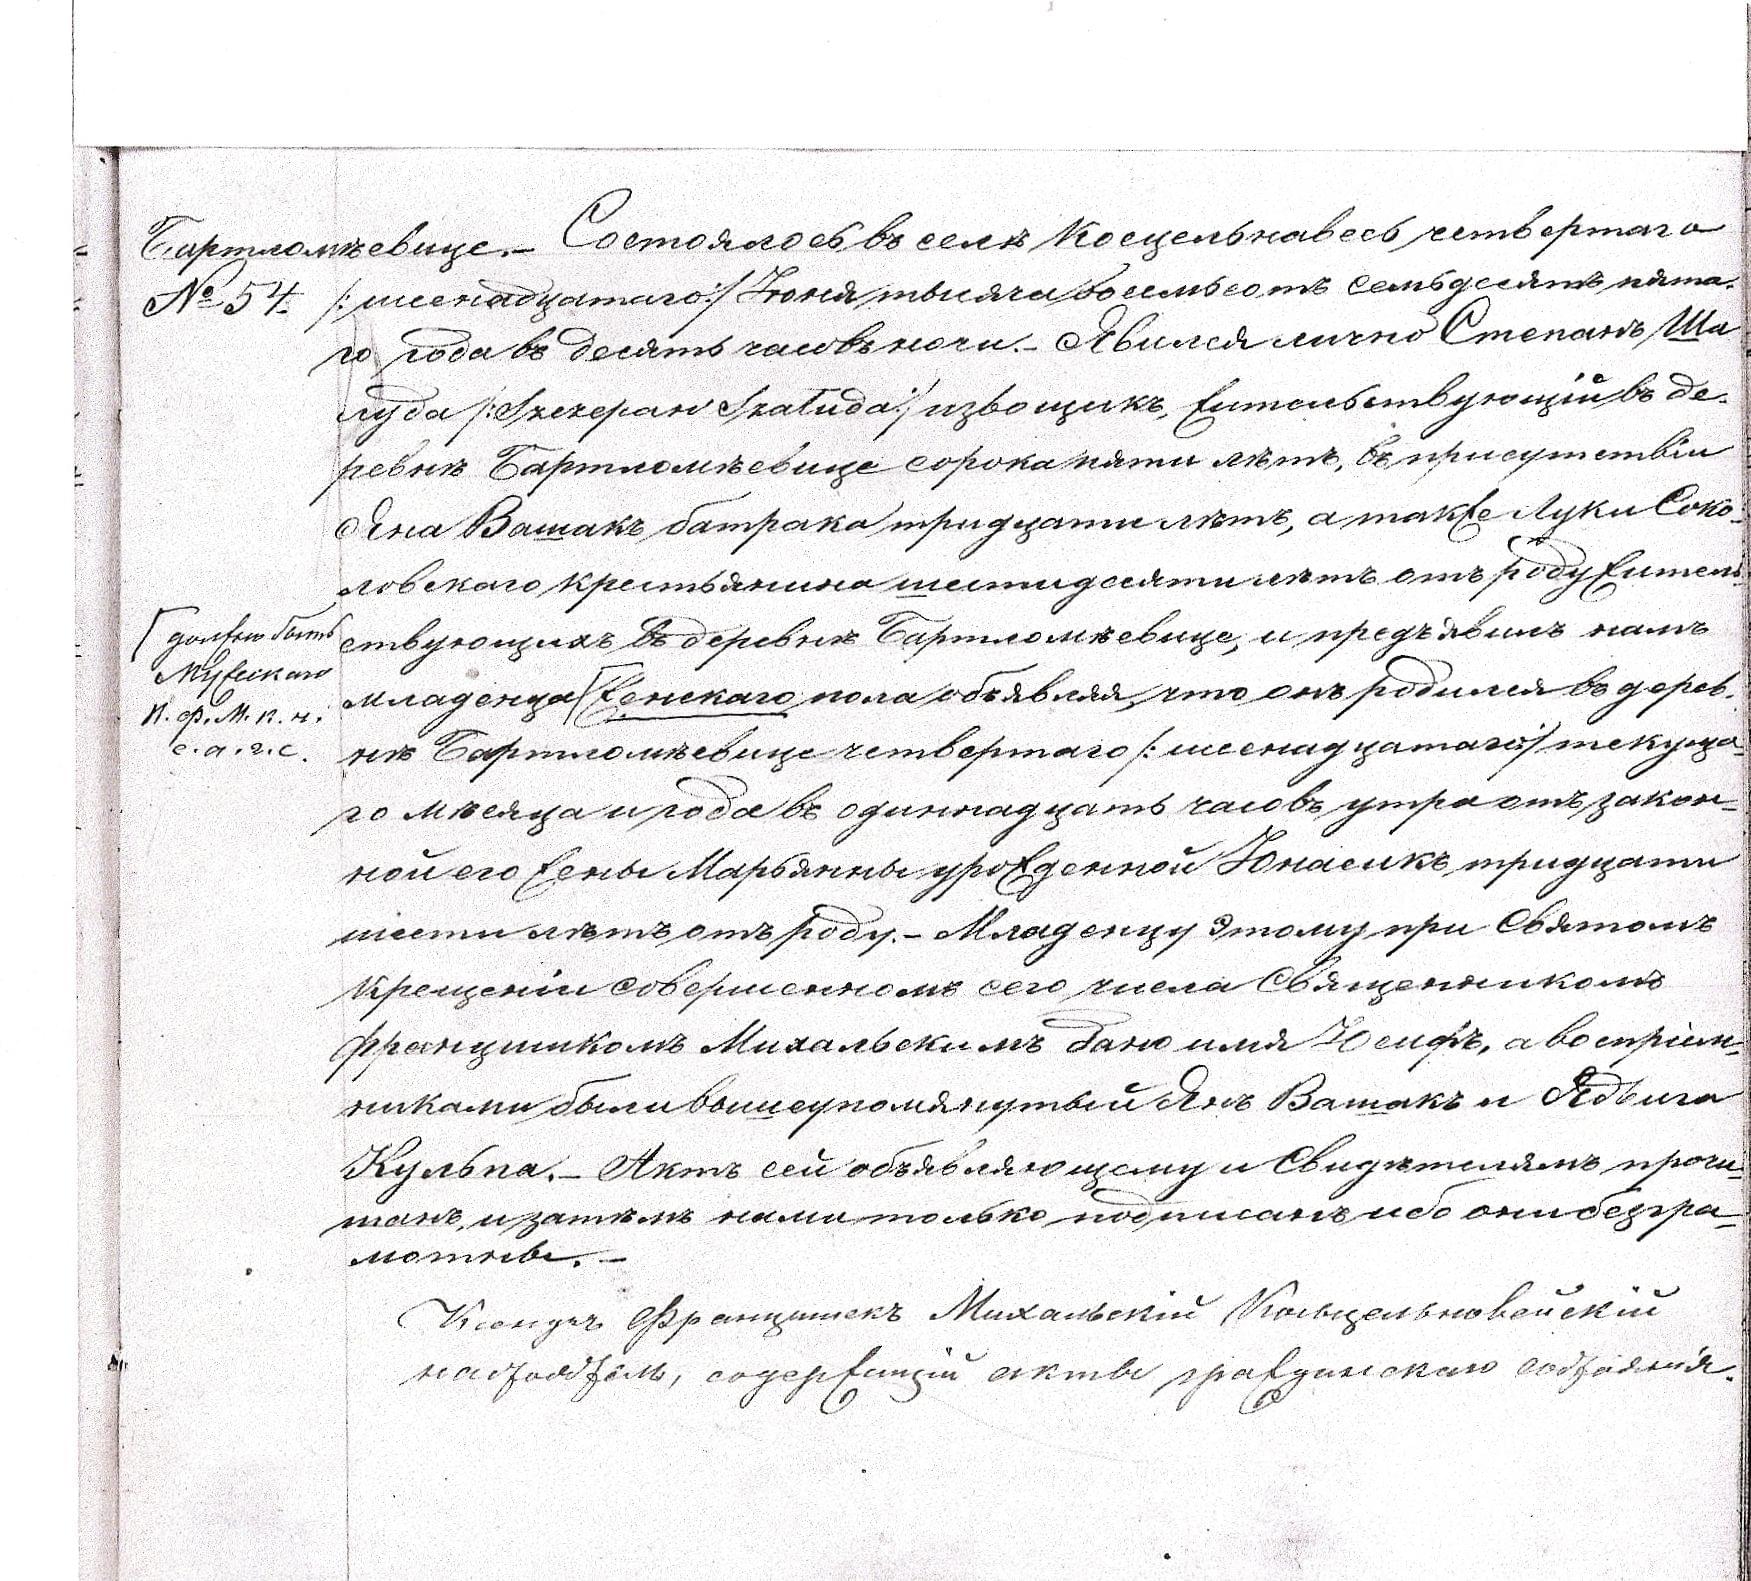 Бартломѣевице. – Состоялось въ селѣ Косцельнавесь четвертаго
№ 54. /: шеснадцатаго :/ Іюня тысяча восемьсотъ семьдесятъ пята-
го года въ десять часовъ ночи. – Явился лично Степанъ Ша
луда /: Szczepan Szałuda :/ извощикъ, жительствующій въ де-
ревнѣ Бартломѣевице сорока пяти лѣтъ, въ присутствіи
Яна Вашакъ батрака тридцати лѣтъ, а также Луки Соко-
ловскаго крестьянина шестидесяти лѣтъ отъ роду житель-
ствующихъ въ деревнѣ Бартломѣевице, и предъявилъ намъ
младенца [женскаго пола объявляя, что онъ родился въ дерев-
нѣ Бартломѣевице четвертаго /: шеснадцатаго :/ текуща-
го мѣсяца и года въ одиннадцать часовъ утра отъ закон-
ной его жены Марьянны урожденной Юнасикъ, тридцати
шести лѣтъ отъ роду. – Младенцу этому при Святомъ
Крещеніи совершенномъ сего числа Священникомъ
Францишкомъ Михальскимъ дано имя Іосифъ, а воспріем-
никами были вышеупомянутый Янъ Вашакъ и Ядвига
Кульпа. – Актъ сей объявляющему и Свидѣтелямъ прочи-
танъ, и затѣмъ нами только подписанъ ибо они безгра-
мотные. –
[должно быть
Мужескаго
К. Ф. М. п. н.
с. а. г. с.
Ксендзъ Францишекъ Михальскій Косьцельновейскій
настоятель, содержащій акты гражданскаго состоянія.